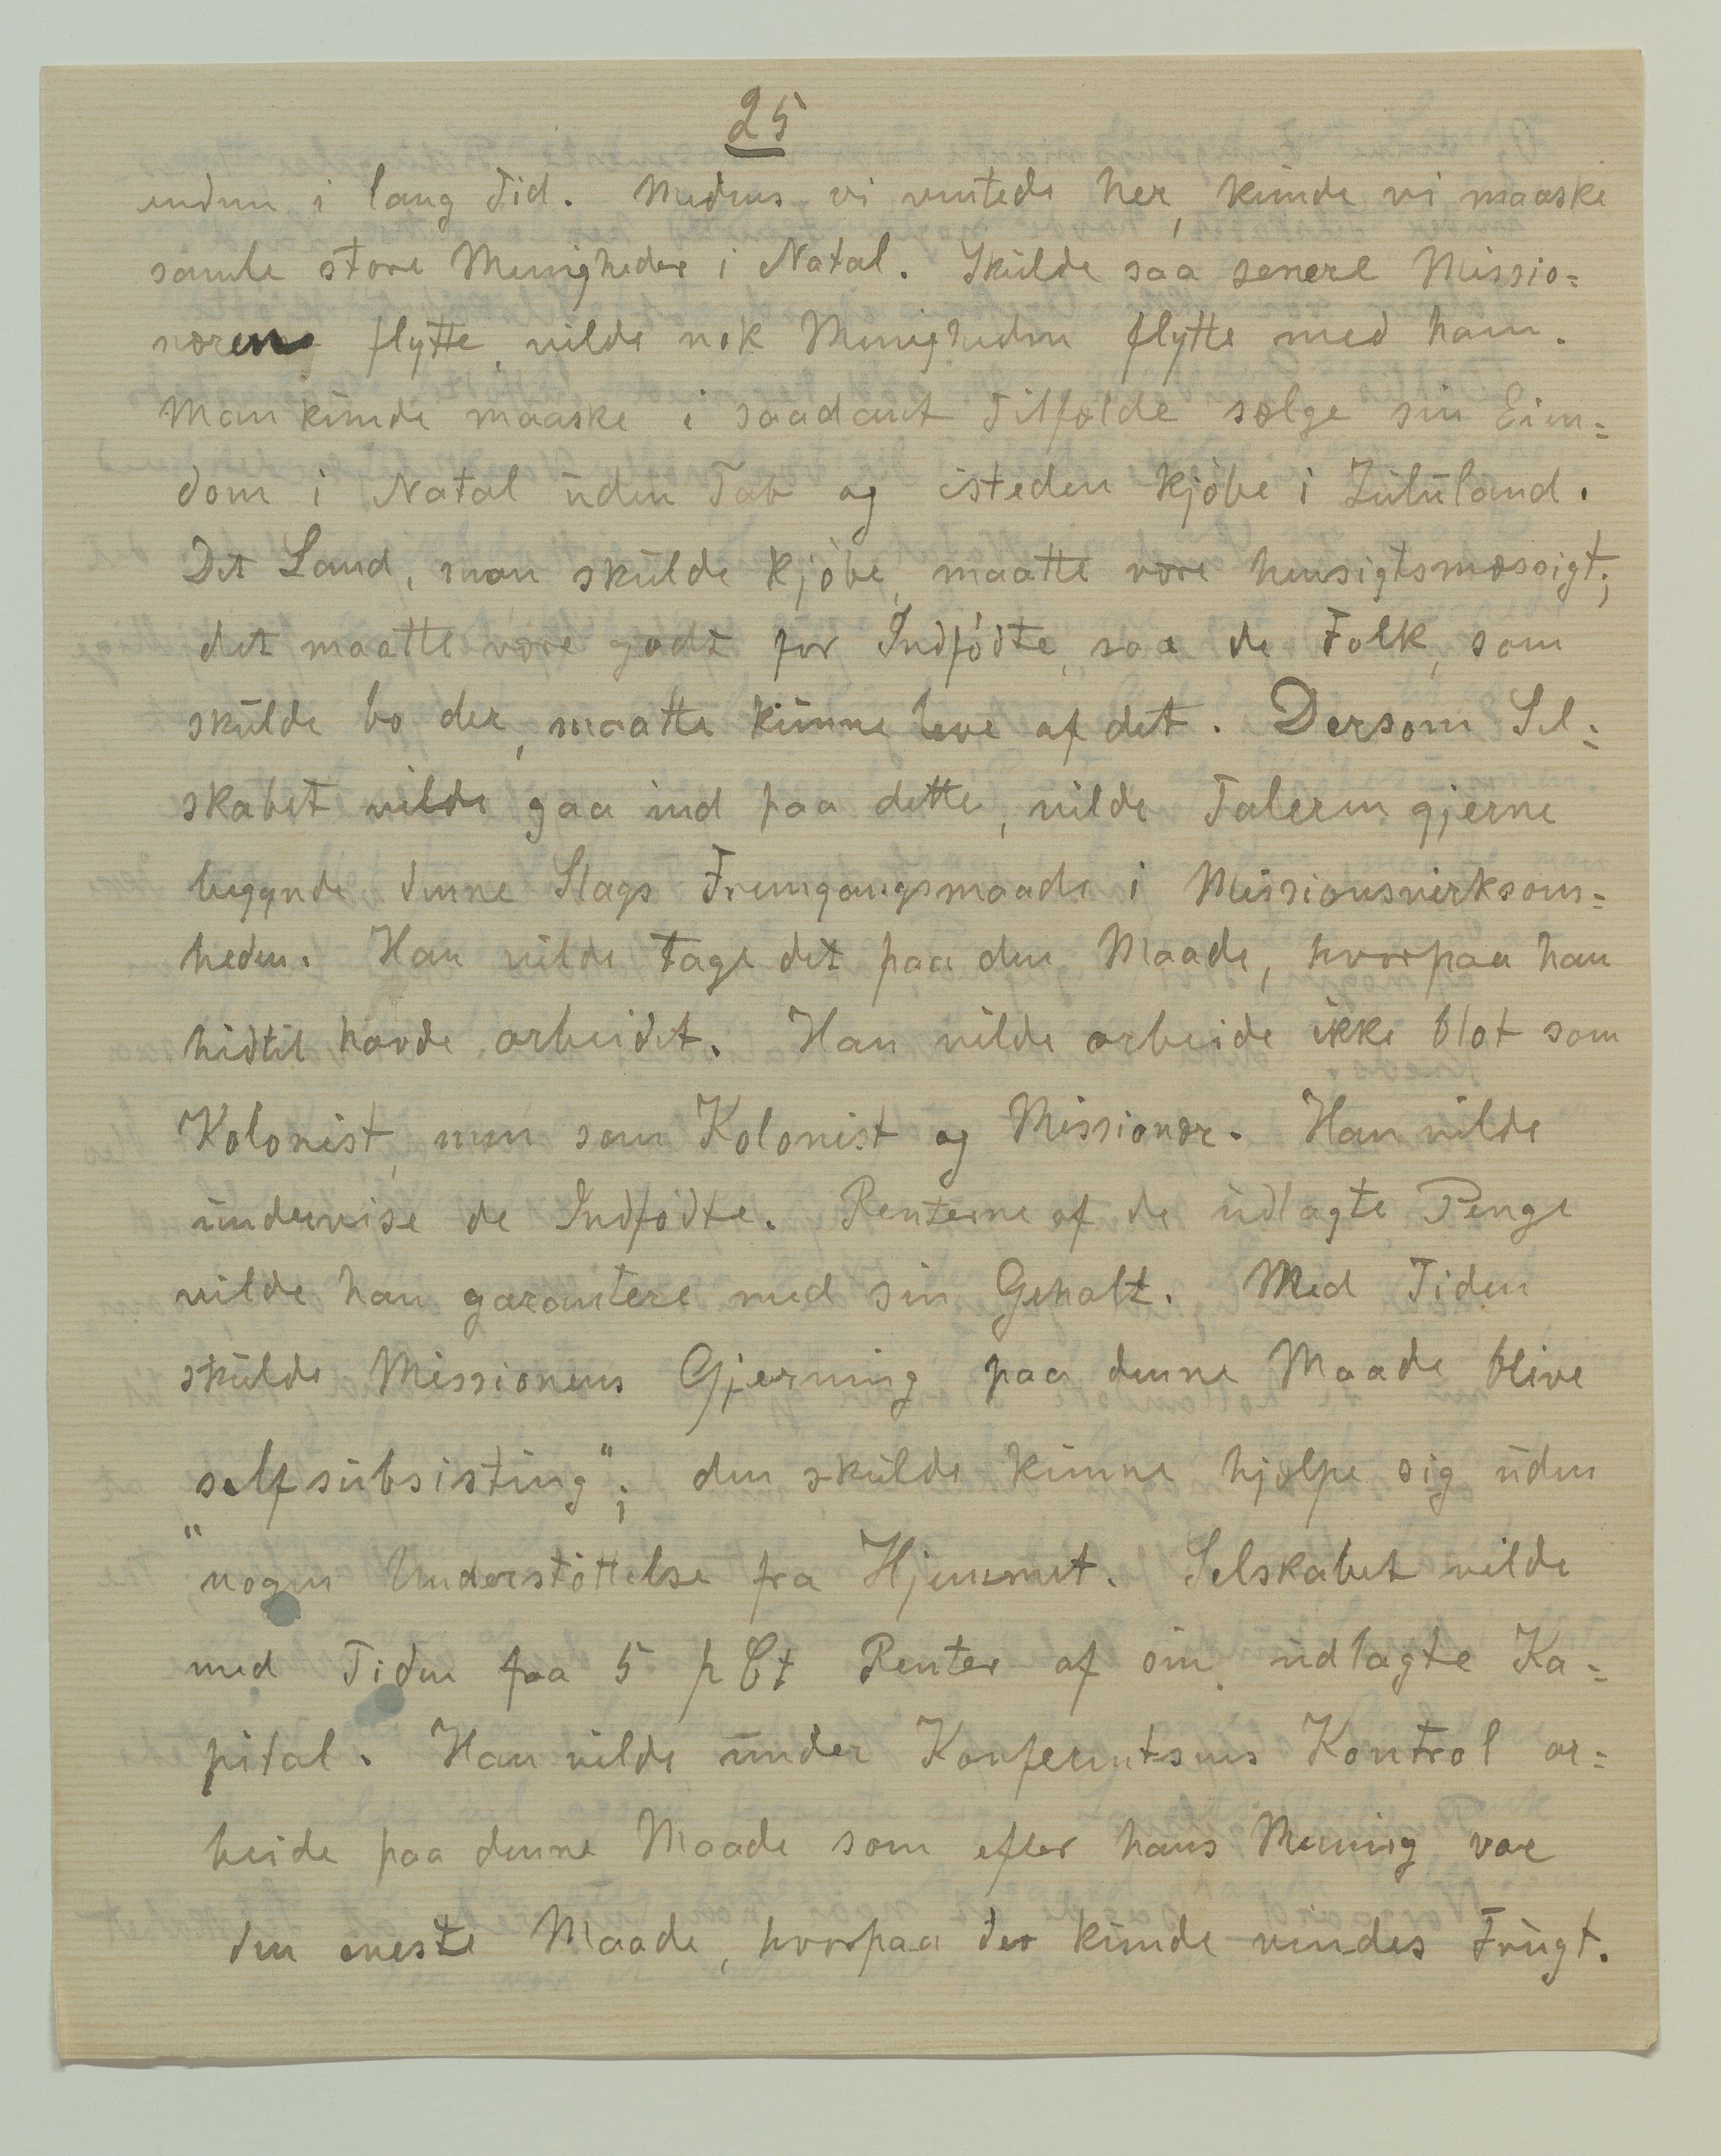 25
endnu i lang Tid. Medens vi ventede her, kunde vi maaske
samle store Menigheder i Natal. Skulde saa senere Missio=
næren flytte, vilde nok Menigheden flytte med ham.
Man kunde maaske i saadant Tilfælde sælge sin Eien=
dom i Natal uden Tab og isteden kjöbe i Zululand.
Det Land, man skulde kjöbe, maatte være hensigtsmæssigt;
det maatte være godt for Indfödte, saa de Folk, som
skulde bo der, maatte kunne leve af det. Dersom Sel=
skabet vilde gaa ind paa dette, vilde Taleren gjerne
begynde denne Slags Fremgangsmaade i Missionsvirksom=
heden. Han vilde tage det paa den Maade, hvorpaa han
hidtil havde arbeidet. Han vilde arbeide ikke blot som
Kolonist, men som Kolonist og Missionær. Han vilde
undervise de Indfödte. Renterne af de udlagte Penge
vilde han garantere med sin Gehalt. Med Tiden
skulde Missionens Gjerning paa denne Maade blive
„selfsubsisting“; den skulde kunne hjælpe sig uden
nogen Understöttelse fra Hjemmet. Selskabet vilde
med Tiden faa 5 p Ct Renter af sin udlagte Ka=
pital. Han vilde under Konferentsens Kontrol ar=
beide paa denne Maade som efter hans Mening var
den eneste Maade, hvorpaa der kunde vindes Frugt.